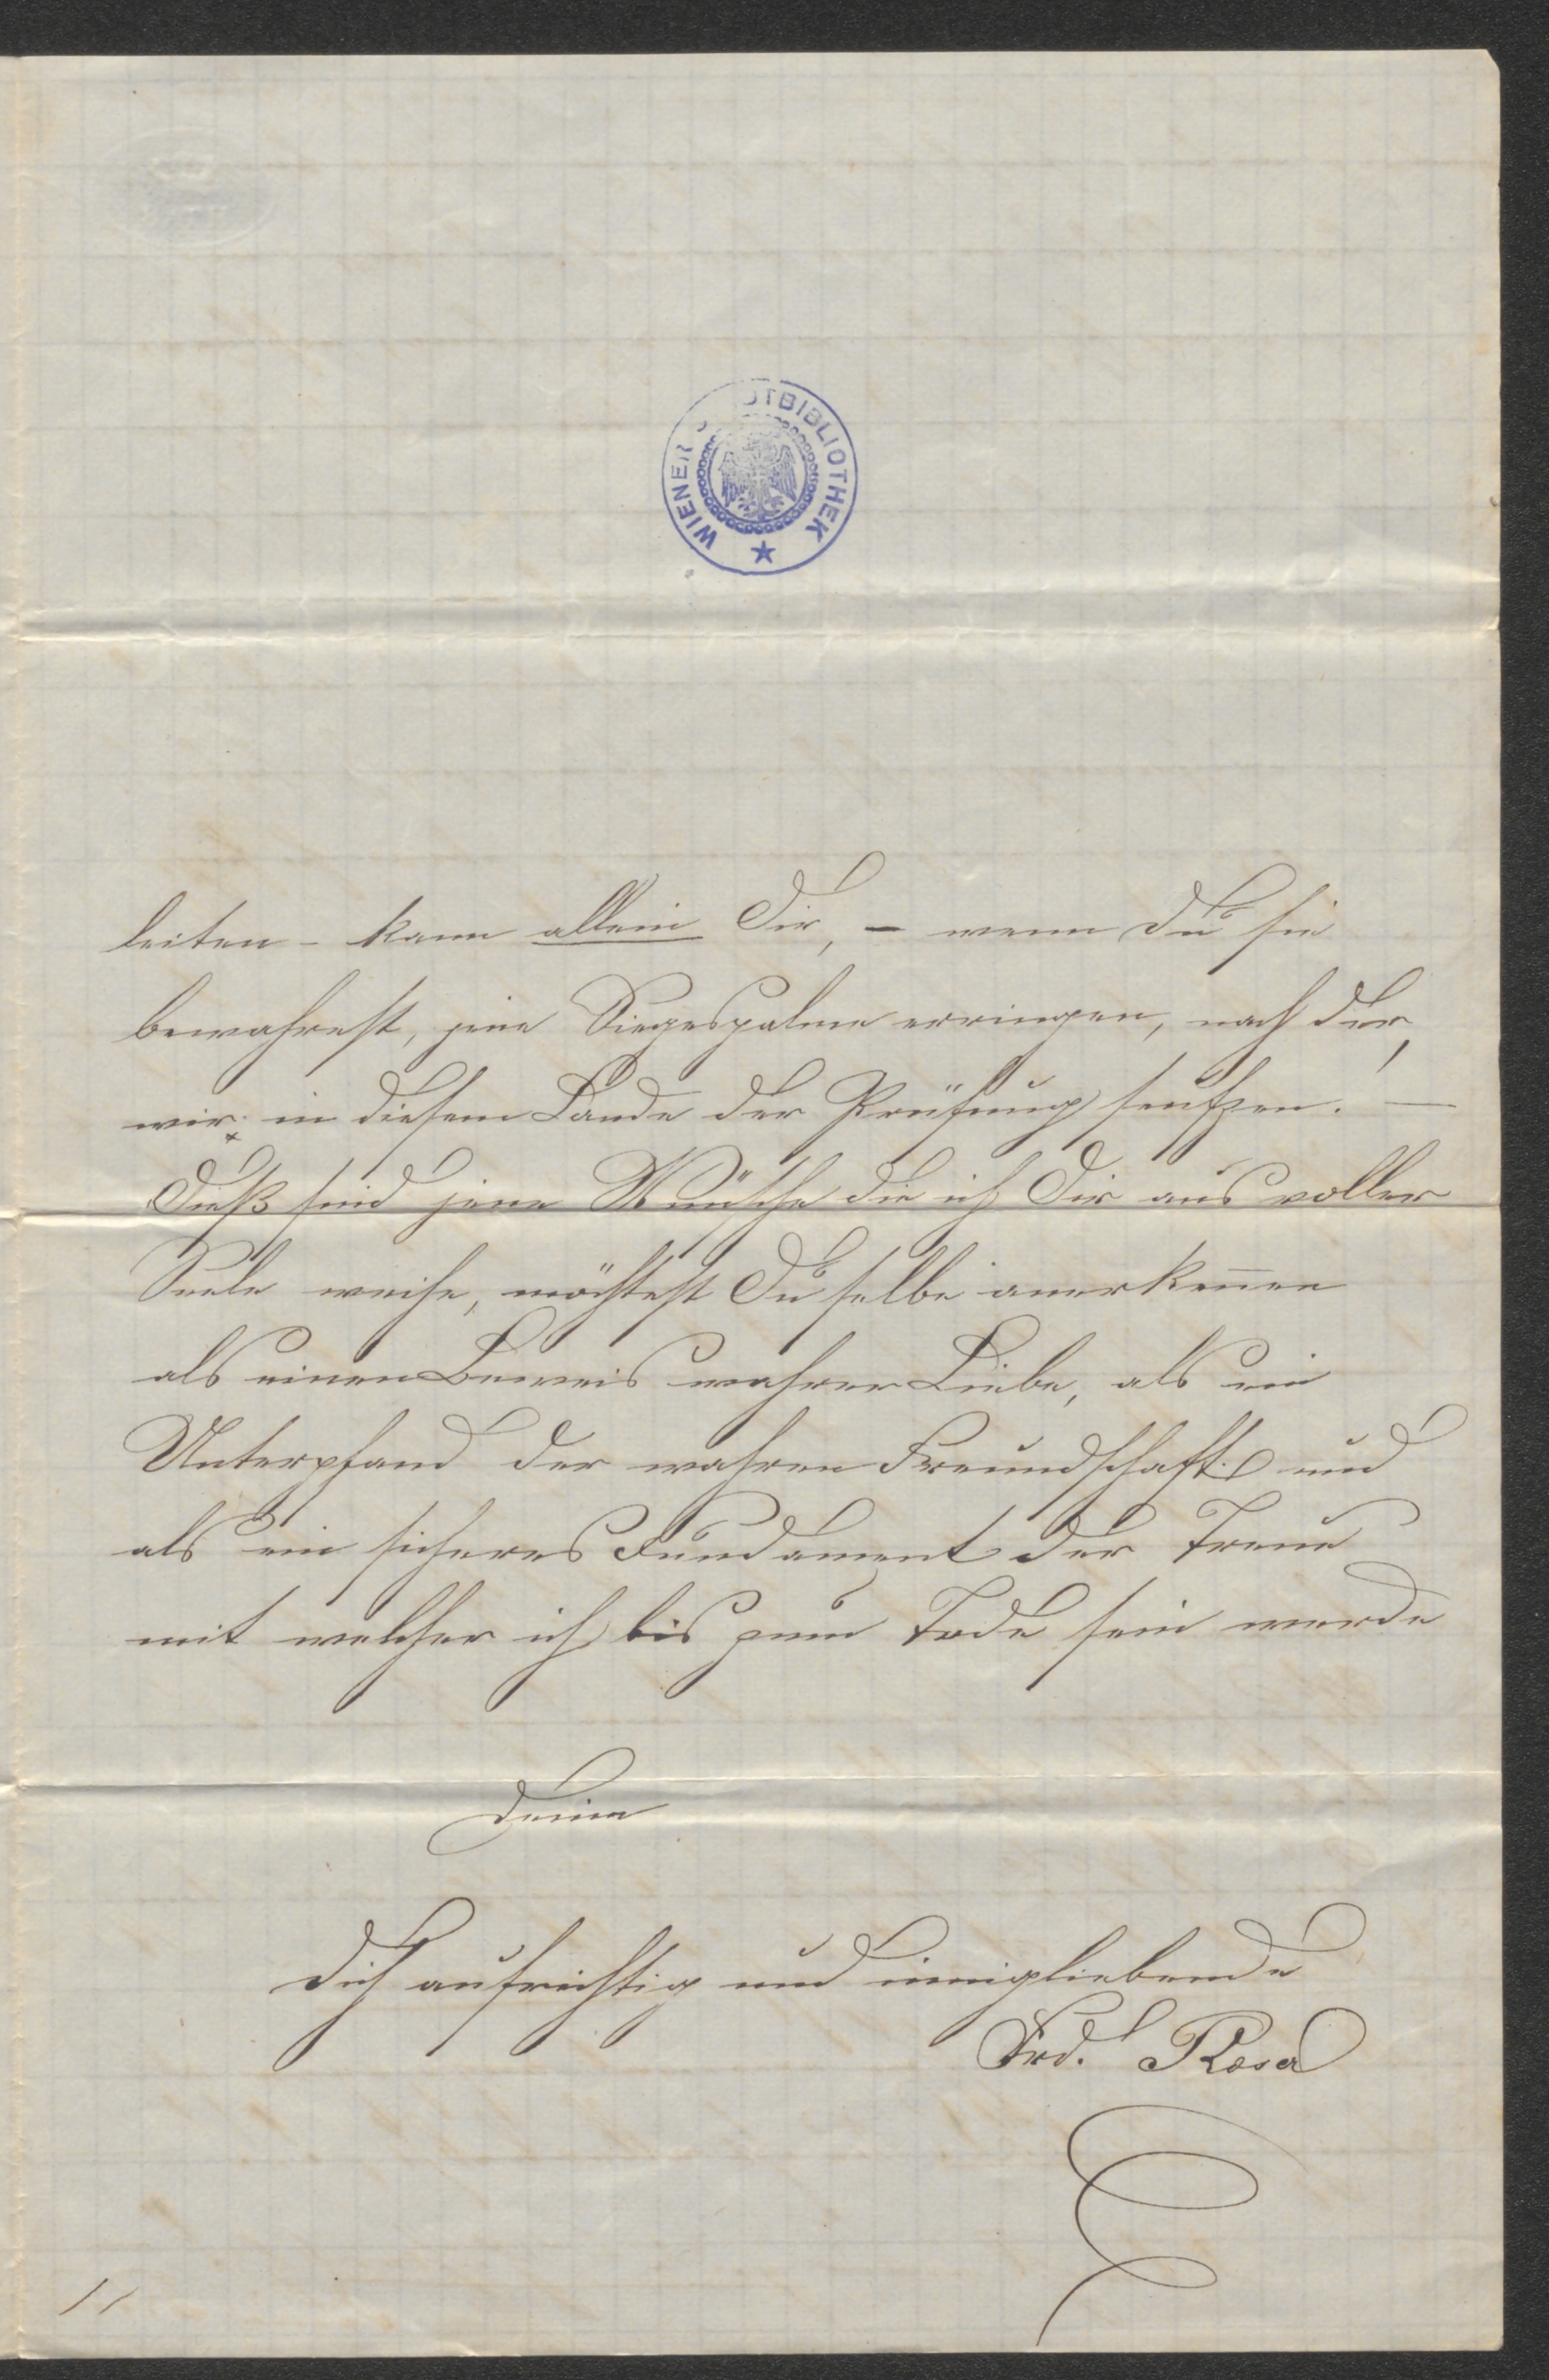 WIENER STADTBIBLIOTHEK
leiten - kann allein Dir, - wenn Du sie
bewahrest, jene Siegespalme erringen, nach der,
wir in diesem Lande der Prüfung seufzen. —
Dieß sind jene Wünsche die ich Dir aus voller
Seele weihe, möchtest Du selbe anerkeñen
als einen Beweis wahrer Liebe, als ein
Unterpfand der wahren Freundschaft und
als ein sicheres Fundament der Treue
mit welcher ich bis zum Tode sein werde
Deine
Dich aufrichtig und innigliebende
Frd. Rosa